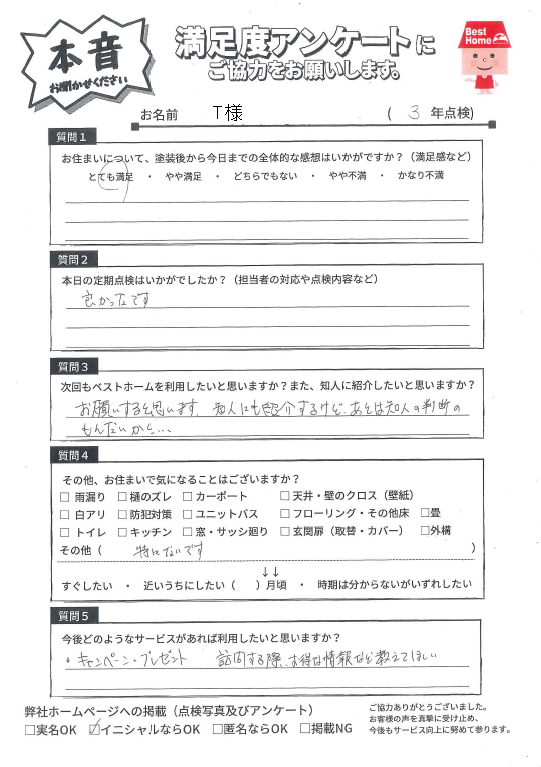 本音
お聞かせください
満足度アンケートに
ご協力をお願いします。
Best
Home
お名前 T様 ( 3 年点検)
質問1
お住まいについて、塗装後から今日までの全体的な感想はいかがですか？（満足感など）
とても満足 ・ やや満足 ・ どちらでもない ・ やや不満 ・ かなり不満
質問2
本日の定期点検はいかがでしたか？（担当者の対応や点検内容など）
良かったです
質問3
次回もベストホームを利用したいと思いますか？また、知人に紹介したいと思いますか？
お願いすると思います。知人にも紹介するけど、あとは知人の判断の
もんだいかと...
質問4
その他、お住まいで気になることはございますか？
□ 雨漏り □ 樋のズレ □ カーポート □ 天井・壁のクロス（壁紙）
□ 白アリ □ 防犯対策 □ ユニットバス □ フローリング・その他床 □畳
□ トイレ □ キッチン □ 窓・サッシ廻り □ 玄関扉（取替・カバー） □外構
その他（ 特にないです ）
↓↓
すぐしたい ・ 近いうちにしたい（ ）月頃 ・ 時期は分からないがいずれしたい
質問5
今後どのようなサービスがあれば利用したいと思いますか？
・キャンペーン・プレゼント 訪問する際、お得な情報など教えてほしい
弊社ホームページへの掲載（点検写真及びアンケート）
□実名OK ☑イニシャルならOK □匿名ならOK □掲載NG
ご協力ありがとうございました。
お客様の声を真摯に受け止め、
今後もサービス向上に努めて参ります。